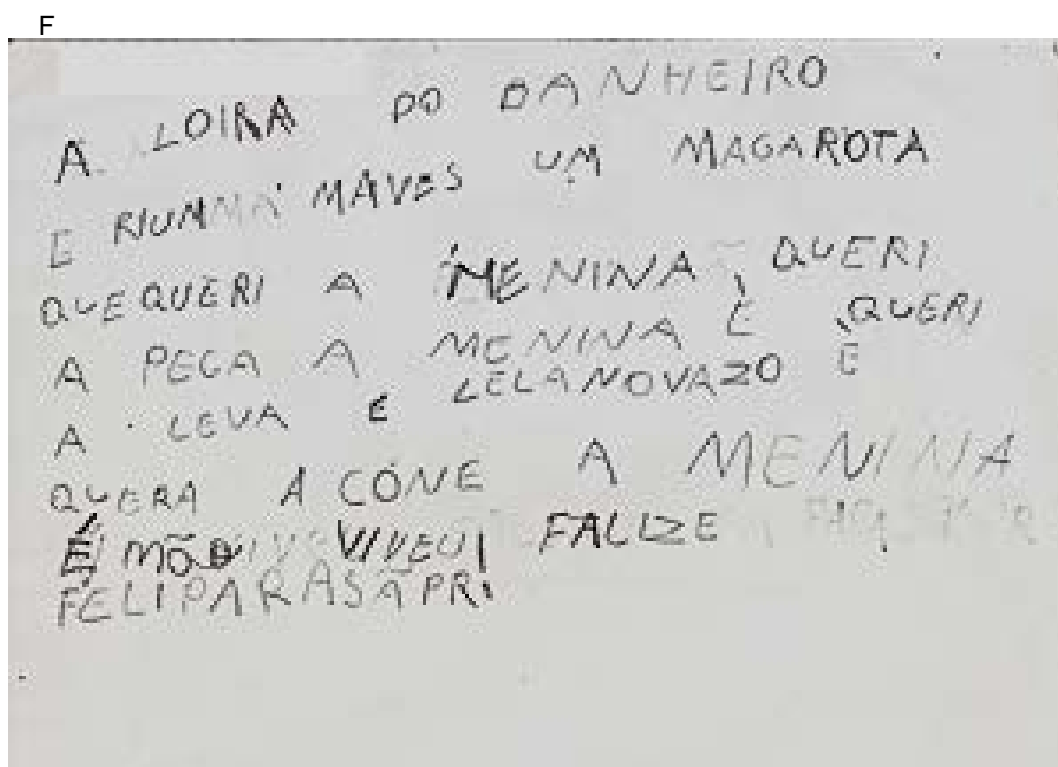 F
A LOIRA DO BANHEIRO
E RIUMMA MAVES UM MAGAROTA
QUEQUERI A MENINA QUERI
A PEGA A MENINA E QUERI
A LEVA E LELANOVAZO E
QUERA A CÓNE A MENINA
E MÕO VIVEUI FALIZE
FELIPARASÃPRI